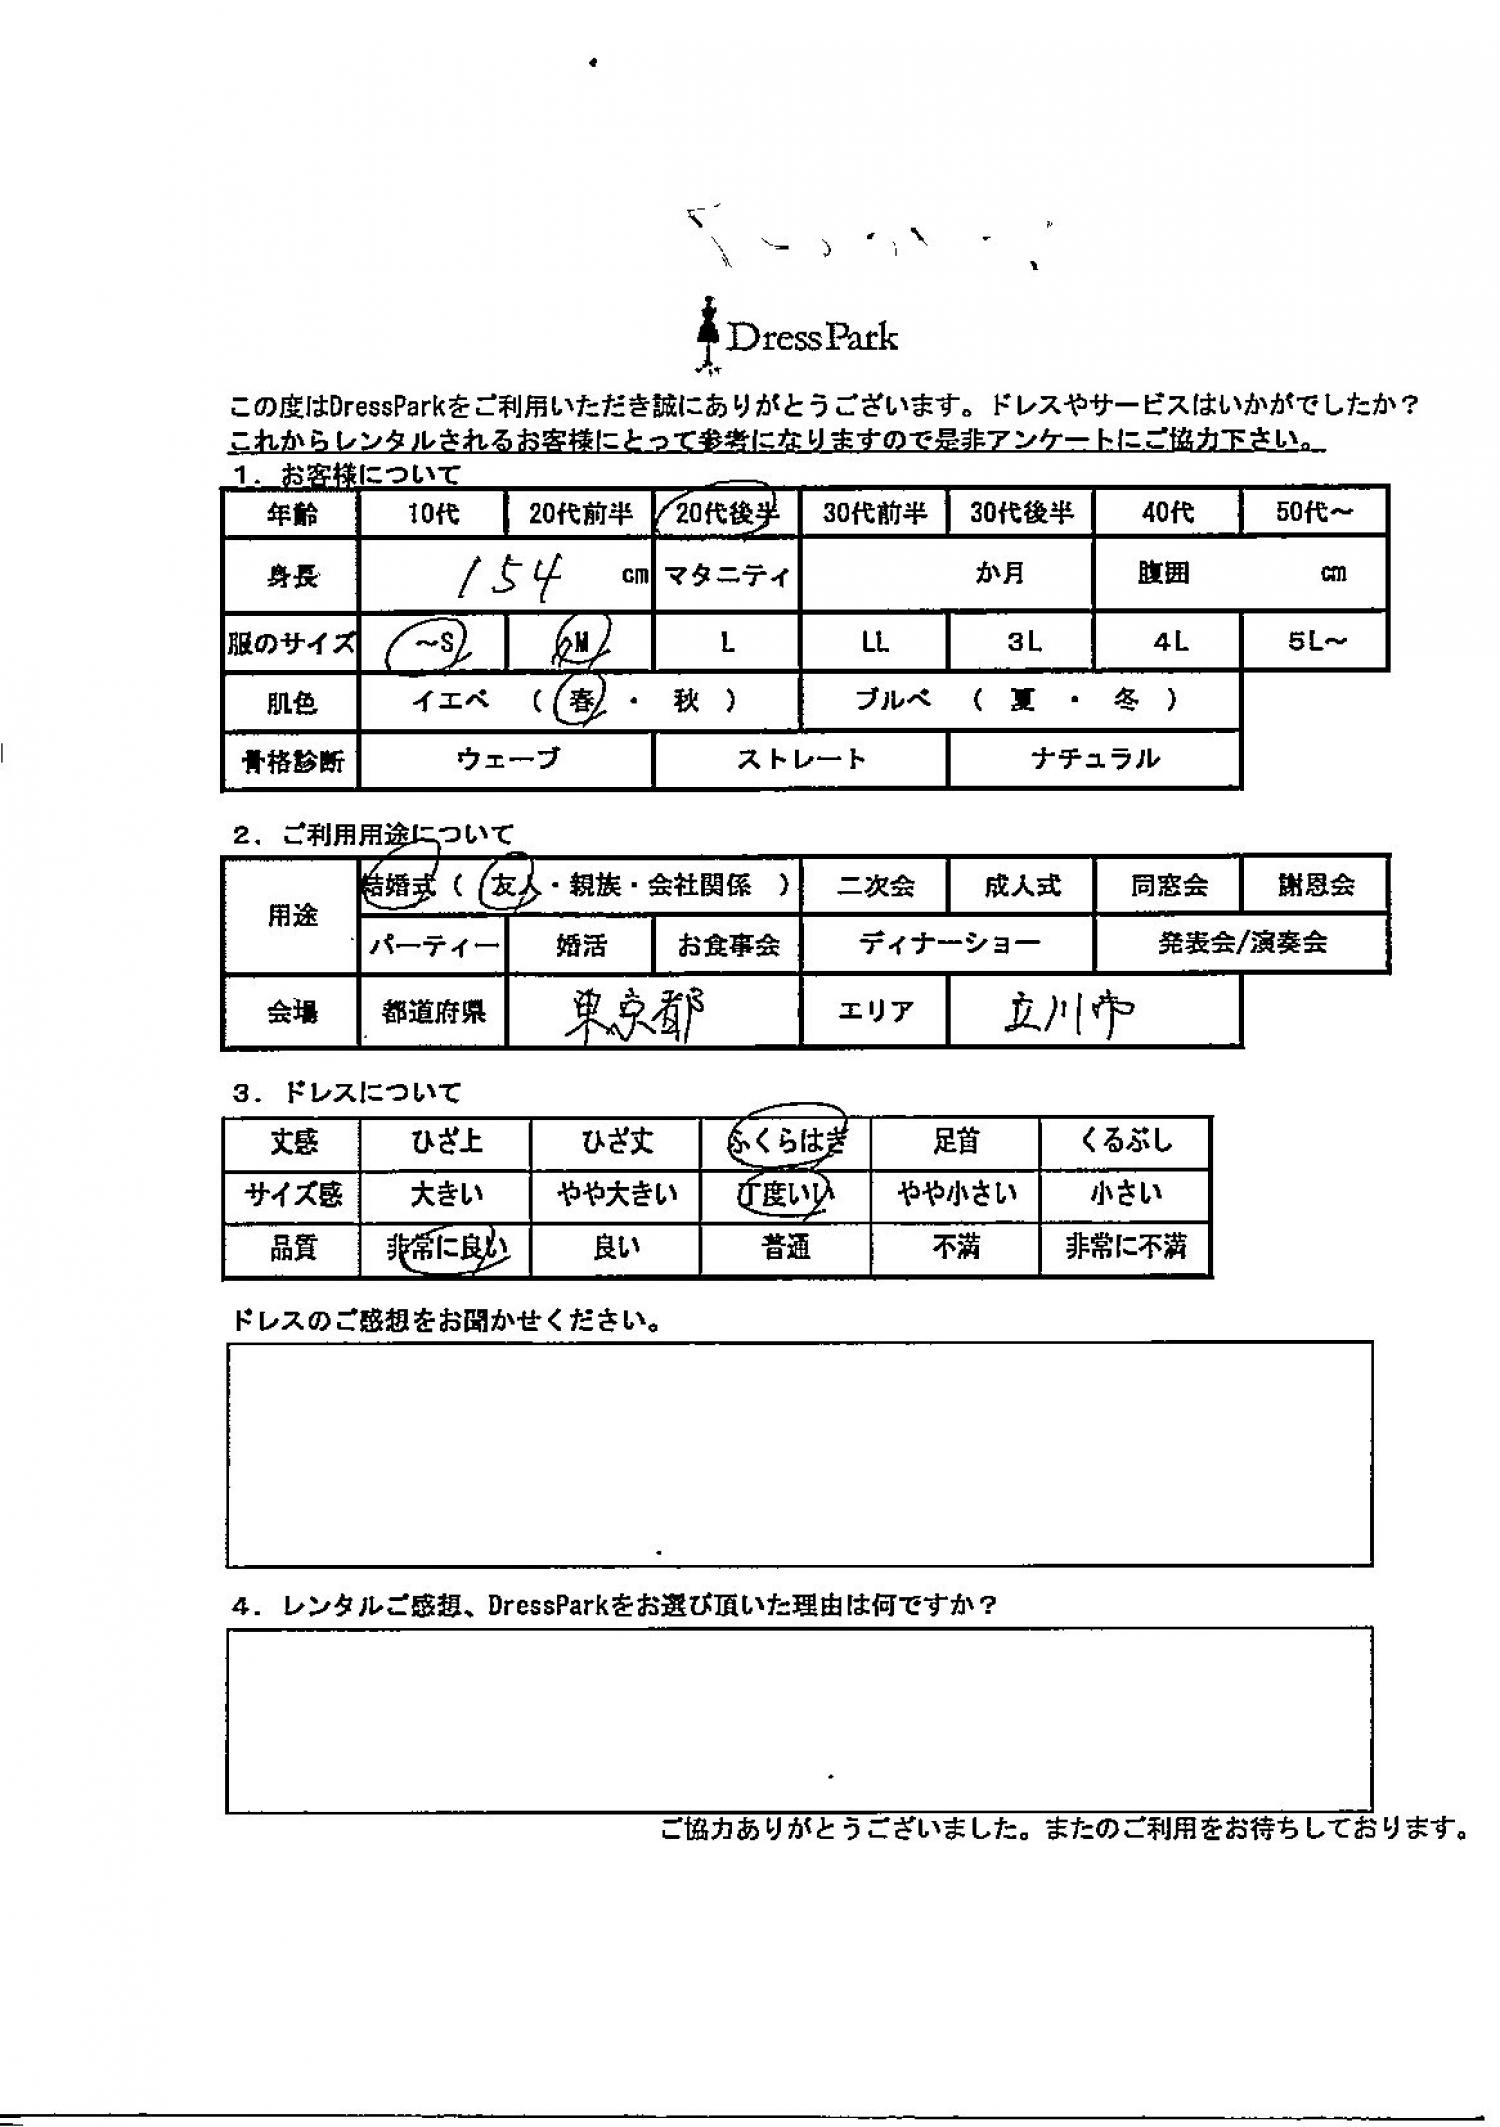 DressPark
この度はDressParkをご利用いただき誠にありがとうございます。ドレスやサービスはいかがでしたか？
これからレンタルされるお客様にとって参考になりますので是非アンケートにご協力下さい。
1．お客様について
年齢 10代 20代前半 20代後半 30代前半 30代後半 40代 50代～
身長 154 cm マタニティ か月 腹囲 cm
服のサイズ ～S M L LL 3L 4L 5L～
肌色 イエベ （ 春 ・ 秋 ） ブルベ （ 夏 ・ 冬 ）
骨格診断 ウェーブ ストレート ナチュラル
2．ご利用用途について
用途 結婚式（ 友人・親族・会社関係 ） 二次会 成人式 同窓会 謝恩会
パーティー 婚活 お食事会 ディナーショー 発表会/演奏会
会場 都道府県 東京都 エリア 立川市
3．ドレスについて
丈感 ひざ上 ひざ丈 ふくらはぎ 足首 くるぶし
サイズ感 大きい やや大きい 丁度いい やや小さい 小さい
品質 非常に良い 良い 普通 不満 非常に不満
ドレスのご感想をお聞かせください。
4．レンタルご感想、DressParkをお選び頂いた理由は何ですか？
ご協力ありがとうございました。またのご利用をお待ちしております。